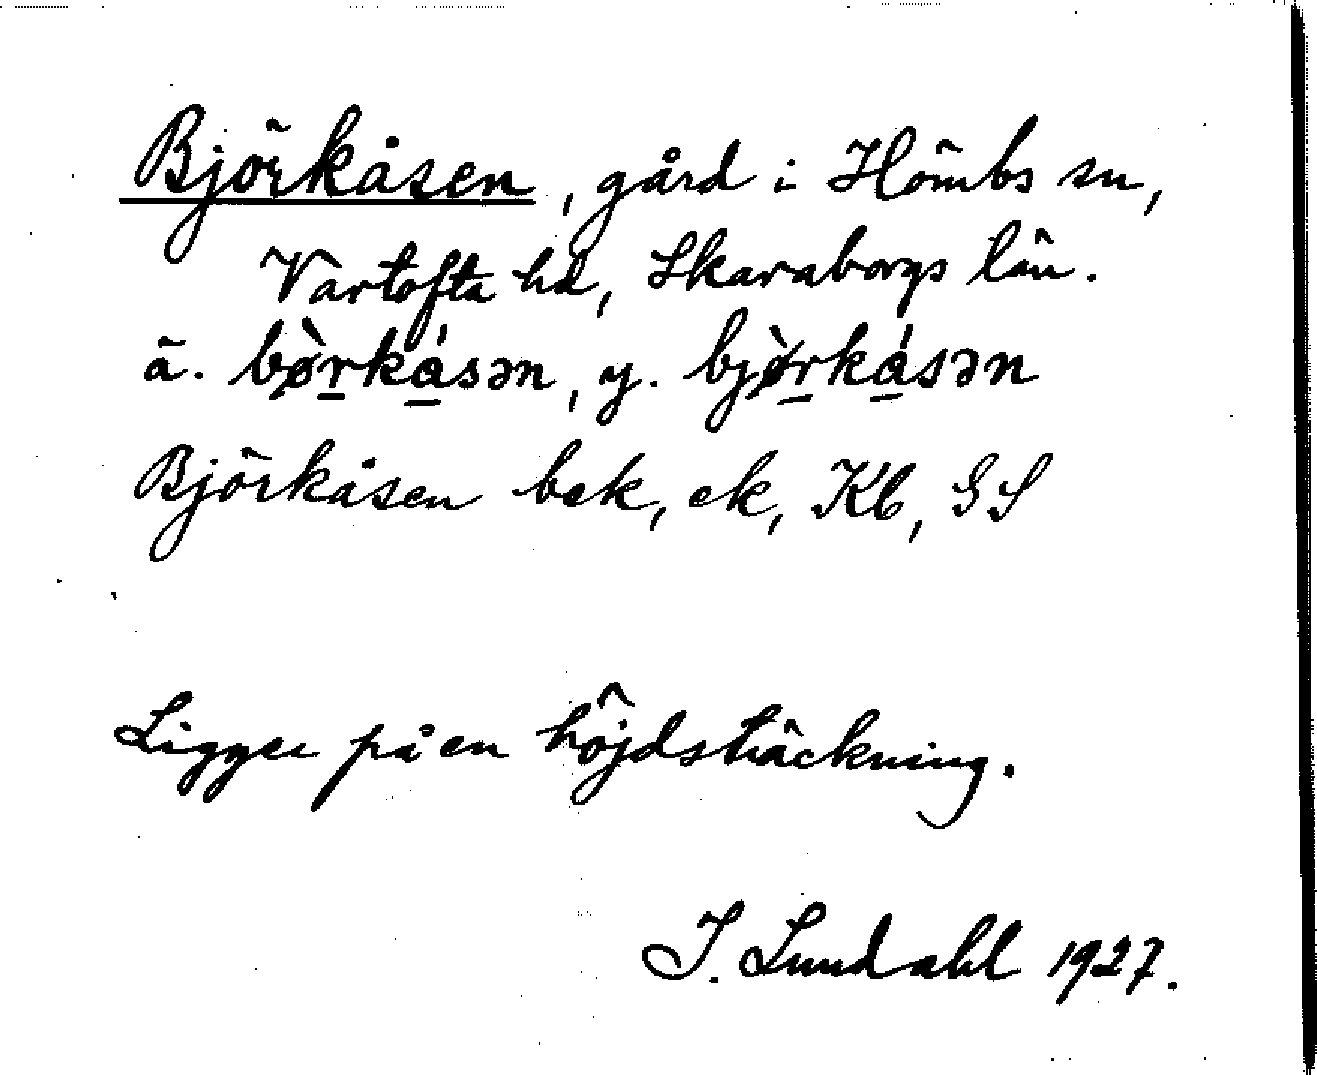 Björkåsen, gård i Hömbs sn,
Vartofta hd, Skaraborgs län.
ä. bø̀rkásən, y. bjø̀rkásən
Björkåsen bek, ek, Kb, GS
Ligger på en höjdsträckning.
I. Lundahl 1927.